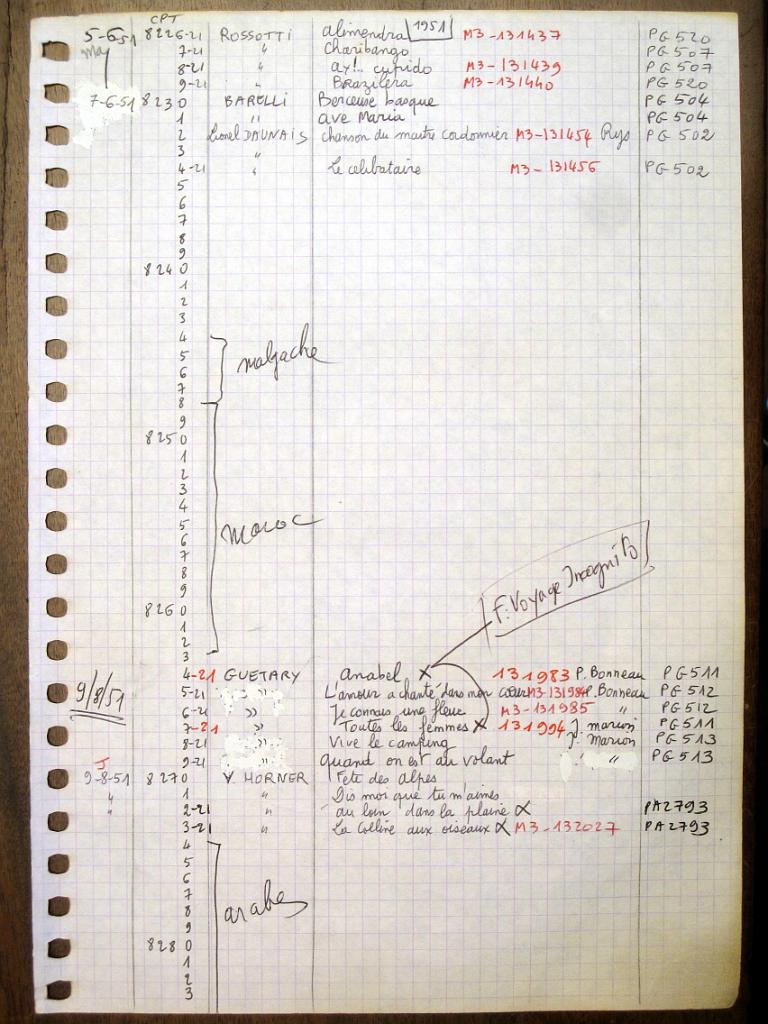 CPT
5-6-51 8226-21 ROSSOTTI alimendra 1951 M3-131437 PG 520
may 7-21 " Charibango PG 507
8-21 " ay!.. cupido M3-131439 PG 507
9-21 " Brazilera M3-131440 PG 520
7-6-51 8230 BARELLI Berceuse basque PG 504
1 " ave Maria PG 504
2 Lionel DAUNAIS chanson du maitre cordonnier M3-131454 Rys PG 502
3 "
4-21 " Le celibataire M3-131456 PG 502
5
6
7
8
9
8240
1
2
3
4
5 malgache
6
7
8
9
8250
1
2
3
4
5 maroc
6
7
8
9
F. Voyage Incognito
8260
1
2
3
4-21 GUETARY anabel x 131983 P. Bonneau PG 511
9/8/51 5-21 " L'amour a chanté dans mon cœur M3-131984 P. Bonneau PG 512
6-21 " Je connais une fleur M3-131985 " PG 512
7-21 " Toutes les femmes x 131994 J. marion PG 511
8-21 Vive le camping J. Marion PG 513
9-21 " quand on est au volant " PG 513
J
9-8-51 8270 Y. HORNER Fete des alpes
" 1 " Dis moi que tu m'aimes
" 2-21 " au loin dans la plaine x PA 2793
3-21 " La colline aux oiseaux x M3-132027 PA 2793
4
5
6
7
8 arabe
9
8280
1
2
3